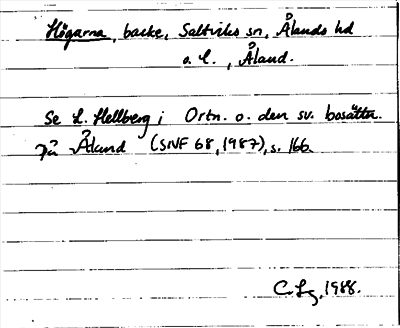 Högarna, backe, Saltviks sn, Ålands hd
o. l., Åland.
Se L. Hellberg i Ortn. o. den sv. bosättn.
på Åland (SNF 68, 1987), s. 166.
1988.